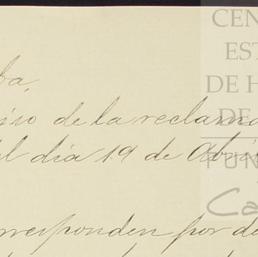 ba.
iso de la reclama
el dia 19 de Abri
rresponden por de
CEN
EST
DE H
DE
FUN
Ca